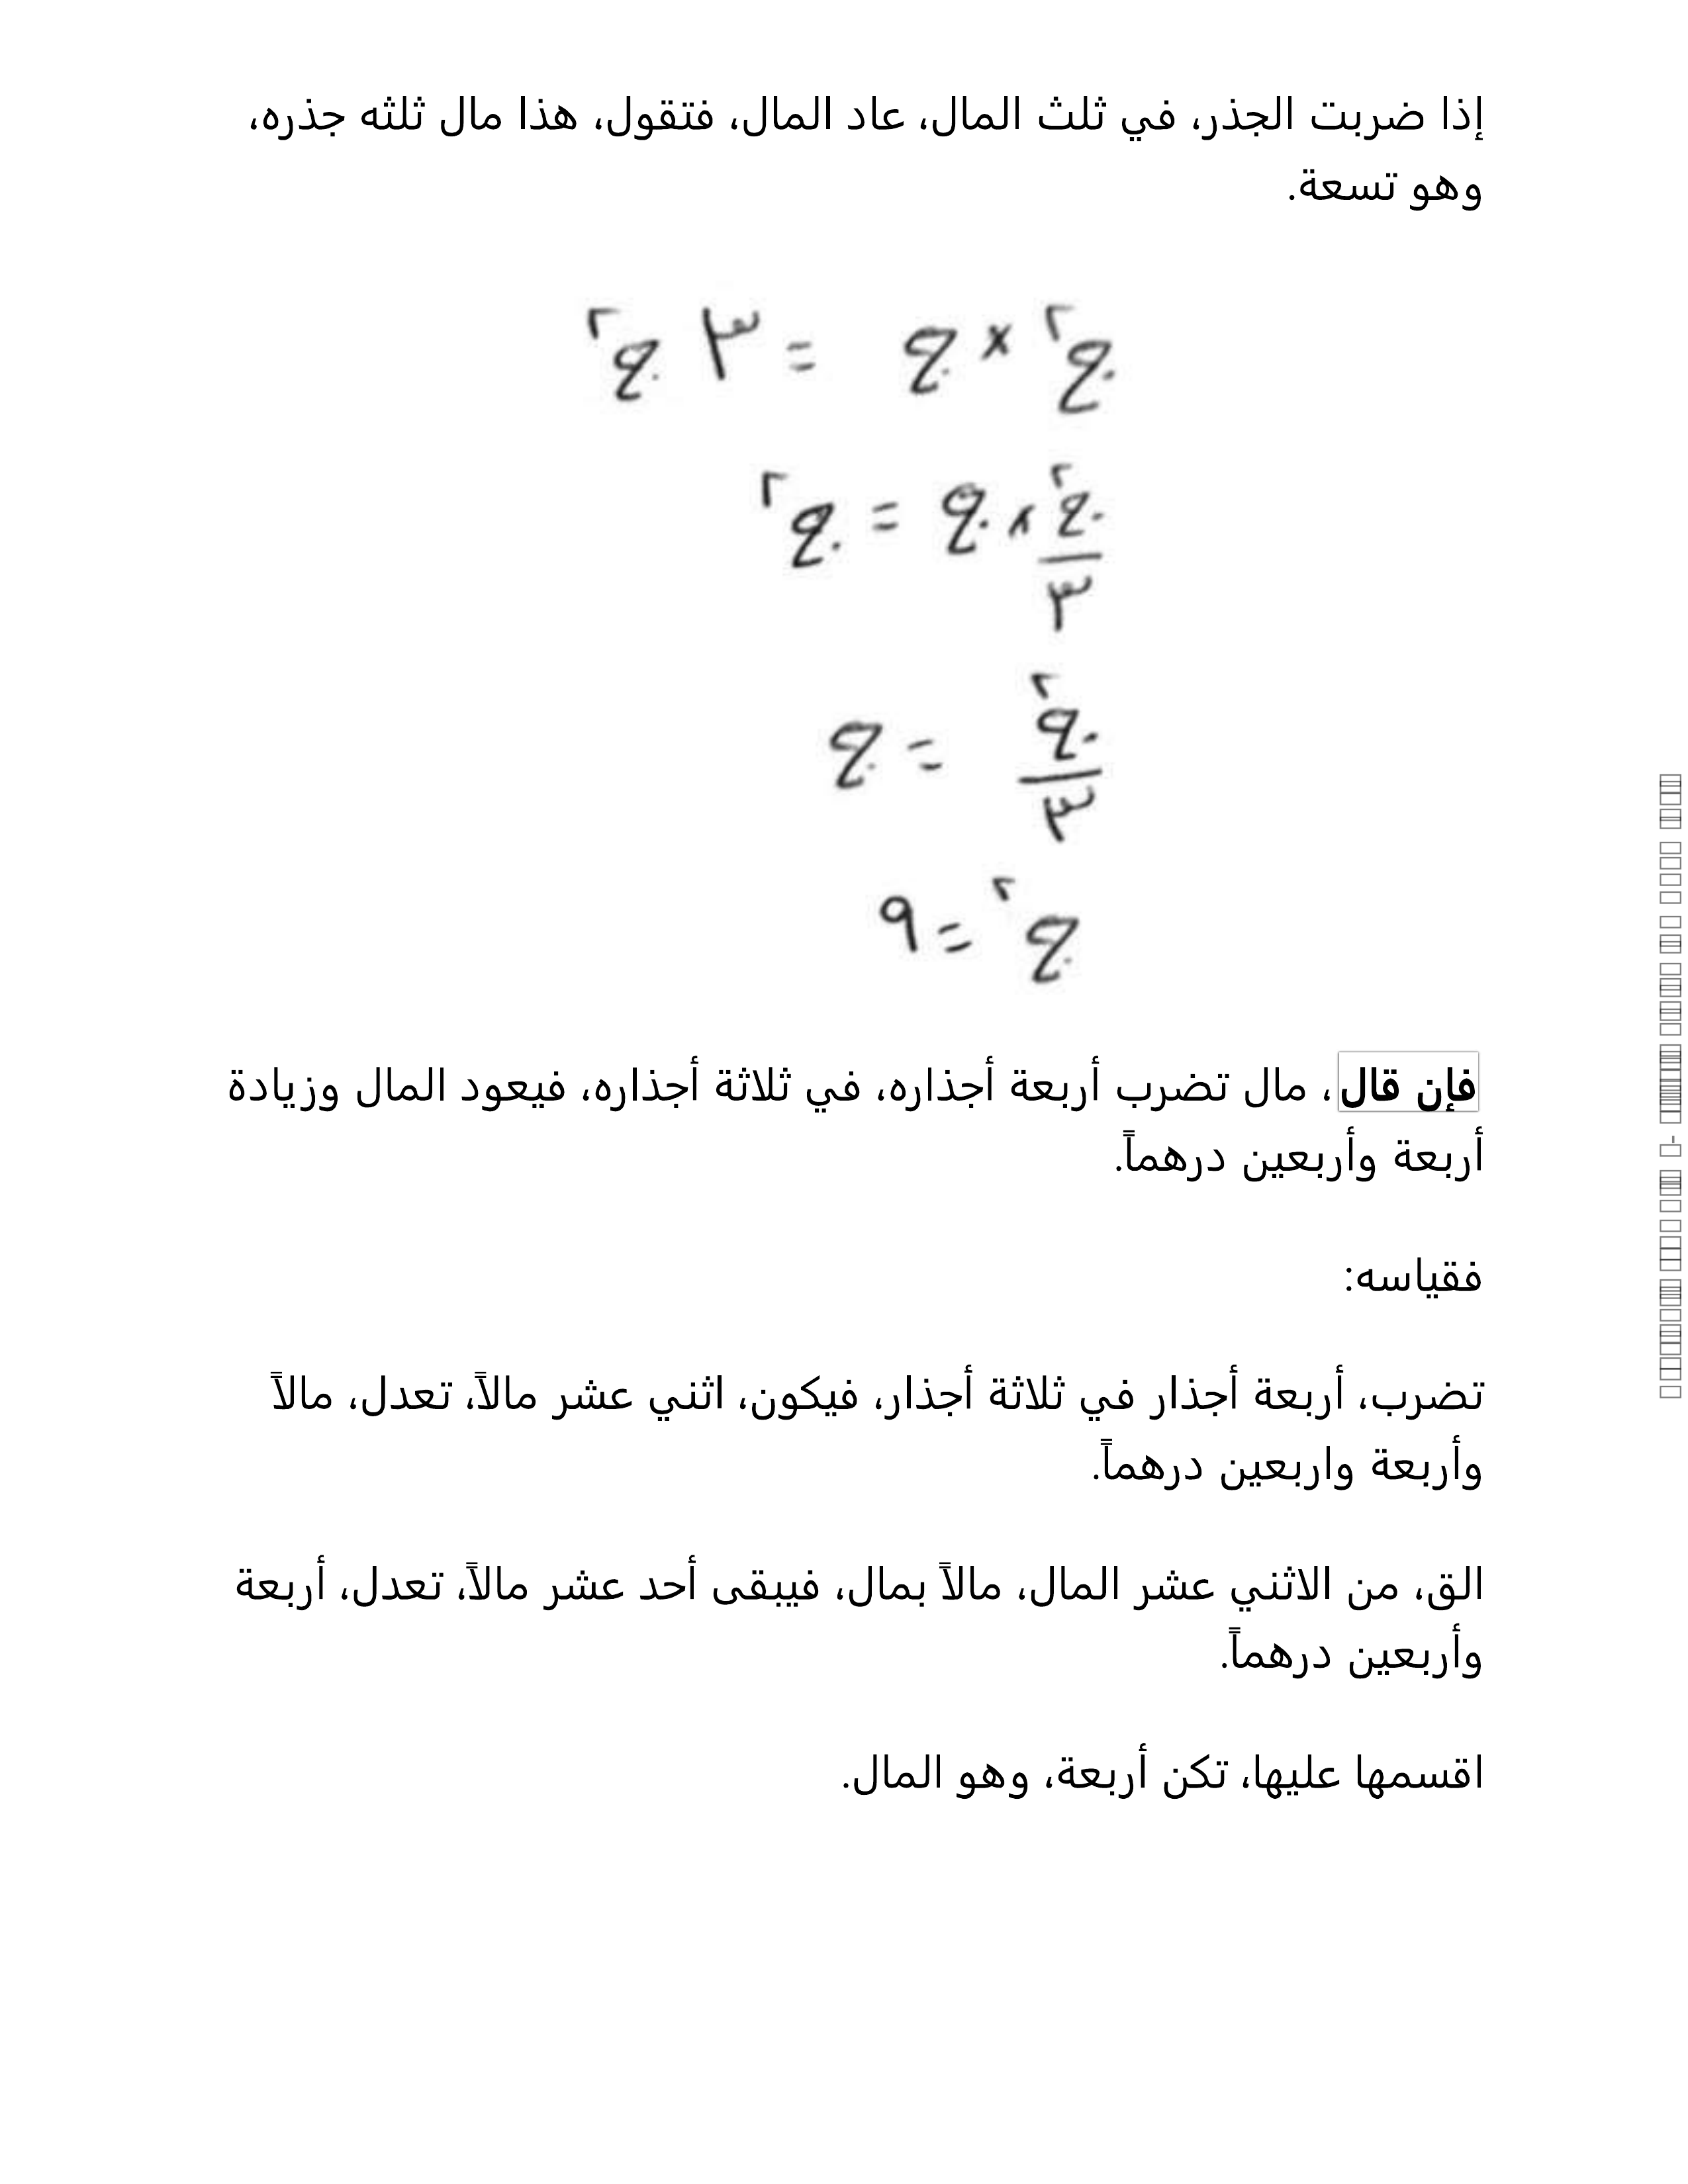 إذا ضربت الجذر، في ثلث المال، عاد المال، فتقول، هذا مال ثلثه جذره،
وهو تسعة.
ج² × ج = ٣ ج²
ج²/٣ × ج = ج²
ج²/٣ = ج
ج² = ٩
فإن قال، مال تضرب أربعة أجذاره، في ثلاثة أجذاره، فيعود المال وزيادة
أربعة وأربعين درهماً.
فقياسه:
تضرب، أربعة أجذار في ثلاثة أجذار، فيكون، اثني عشر مالاً، تعدل، مالاً
وأربعة واربعين درهماً.
الق، من الاثني عشر المال، مالاً بمال، فيبقى أحد عشر مالاً، تعدل، أربعة
وأربعين درهماً.
اقسمها عليها، تكن أربعة، وهو المال.